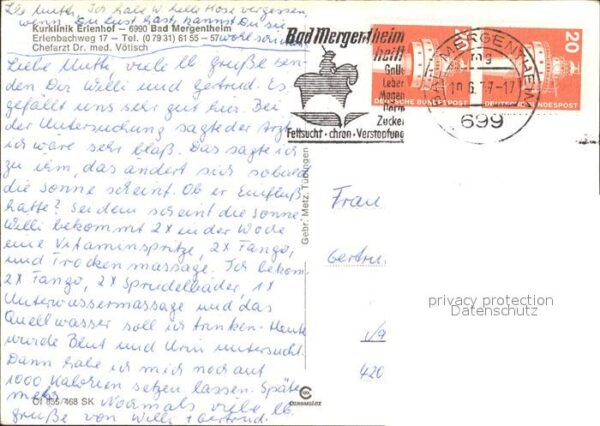 Lb. Mutti, Ich habe w. helle Hose vergessen
wenn Du Lust hast, kannst Du sie
wohl schicken
Kurklinik Erlenhof – 6990 Bad Mergentheim
Erlenbachweg 17 – Tel. (0 79 31) 61 55 – 57
Chefarzt Dr. med. Vötisch
Liebe Mutti, viele lb. grüße sen-
den Dir Willi und Gertrud. Es
gefällt uns sehr gut hier. Bei
der Untersuchung sagte der Arzt
ich wäre sehr blaß. Das sagte ich
zu ihm, das ändert sich sobald
die Sonne scheint. Ob er Einfluß
hatte? Seidem scheint die Sonne
Willi bekommt 2x in der Woche
eine Vitaminspritze, 2x Fango,
und Trockenmassage. Ich bekom.
2x Fango, 2x Sprudelbäder, 1x
Unterwassermassage und das
Quellwasser soll ich trinken. Heute
wurde Blut und Urin untersucht.
Dann habe ich mich noch auf
1000 Kalorien setzen lassen. Später
mehr. Nochmals viele lb.
grüße von Willi + Gertrud.
Ol 855/468 SK
Gebr. Metz, Tübingen
CEKAMETZ
Bad Mergentheim
heilt
Galle
Leber
Magen
Darm
Zucker
Fettsucht · chron · Verstopfung
MERGENTHEIM
-17
699
20
DEUTSCHE BUNDESPOST
DEUTSCHE BUNDESPOST
Frau
Gertru
420
privacy protection
Datenschutz